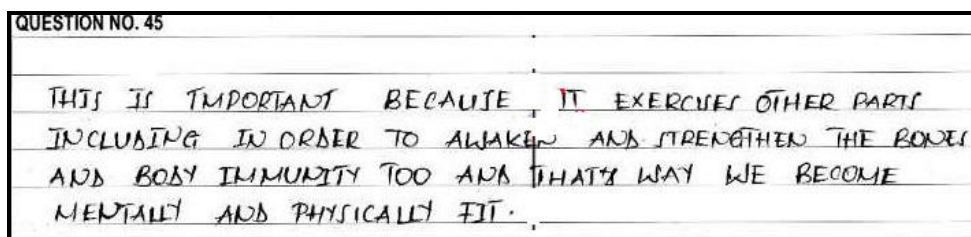 QUESTION NO. 45
THIS IS IMPORTANT BECAUSE IT EXERCISES OTHER PARTS
INCLUDING IN ORDER TO AWAKEN AND STRENGTHEN THE BONES
AND BODY IMMUNITY TOO AND THAT'S WAY WE BECOME
MENTALLY AND PHYSICALLY FIT.